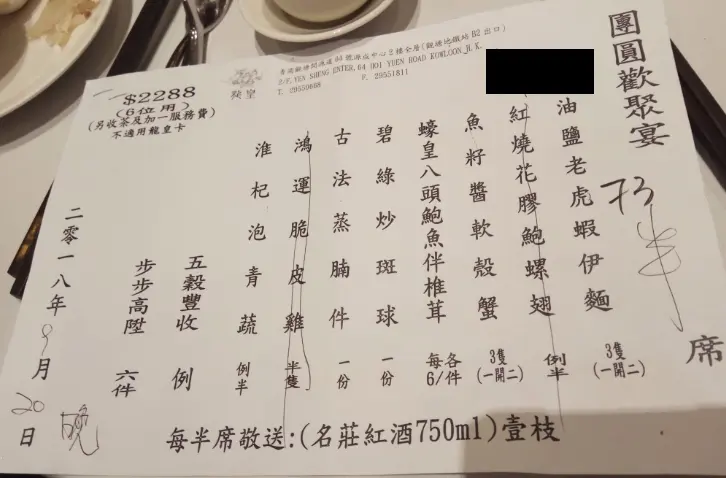 團圓歡聚宴
73
半
席
油鹽老虎蝦伊麵 3隻(一開二)
紅燒花膠鮑螺翅 例半
魚籽醬軟殼蟹 3隻(一開二)
蠔皇八頭鮑魚伴椎茸 每各6/件
碧綠炒斑球 一份
古法蒸腩件 一份
鴻運脆皮雞 半隻
淮杞泡青蔬 例半
五穀豐收 例
步步高陞 六件
$2288
(6位用)
(另收茶及加一服務費)
不適用龍皇卡
二零一八年9月20日 晚
每半席敬送:(名莊紅酒750ml)壹枝
2/F, YEN SHENG ENTER, 64 HOI YUEN ROAD KOWLOON H.K.
F. 29551811